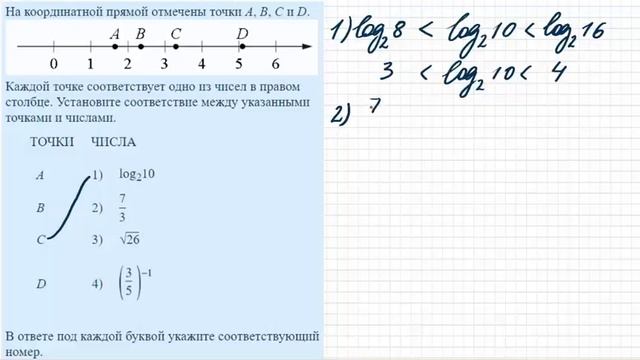 На координатной прямой отмечены точки A, B, C и D.
A B C D
0 1 2 3 4 5 6
Каждой точке соответствует одно из чисел в правом
столбце. Установите соответствие между указанными
точками и числами.
ТОЧКИ ЧИСЛА
A 1) log₂10
B 2) 7/3
C 3) √26
D 4) (3/5)⁻¹
В ответе под каждой буквой укажите соответствующий
номер.
1) log₂8 < log₂10 < log₂16
3 < log₂10 < 4
2) 7